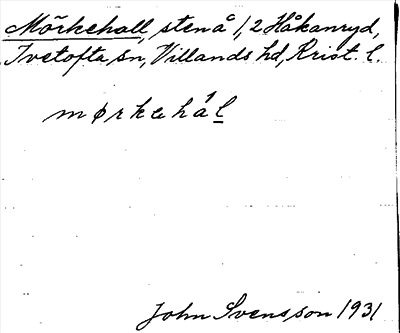 Mörkehall, sten å 1/2 Håkanryd,
Ivetofta sn, Villands hd, Krist. l.
mørkehál
John Svensson 1931